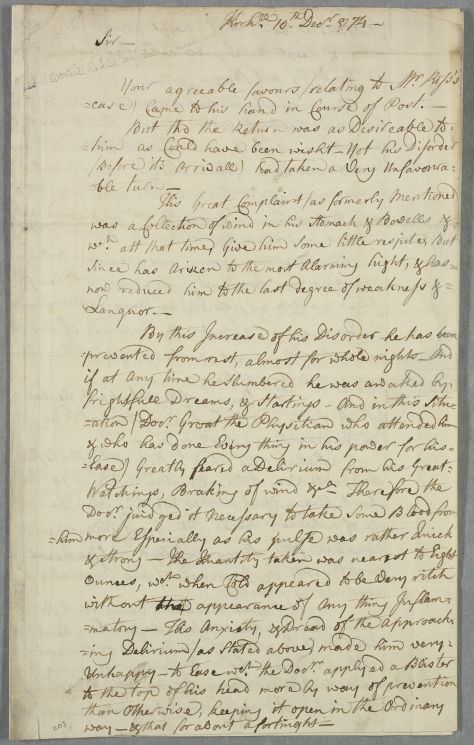 Kirk^ll 10^th Dec^r 1774 —
Sir —
Your agreeable favours (relating to M^r Ross's
=case) Came to his hand in Course of Post. —
But tho the Return was as Desireable to=
=him as Could have been wisht — Yet his Disorder
(Before its Arrivall) had taken a Very Unfavoura=
ble turn —
His Great Complaint (as formerly Mentioned
was a Collection of wind in his Stomach & Bowells &
w^ch att that time, Give him Some little respite, But
Since has Arisen to the most Alarming hight, & has=
now reduced him to the last degree of weakness &=
Languor. —
By this Increase of his Disorder he has been
prevented from rest, almost for whole nights — And
if at Any time he Slumbered he was awaked by
frightfull Dreams, & Startings — And in this Situ=
=ation (Doc^r Groat the Physitian who attended him
& who has done Every thing in his power for his=
=Ease) Greatly feared a Delirium from his Great=
Watchings, Braking of wind &c^a Therefore the
Doc^r juidged it Necessary to take Some Blood from
=him more Especially as his pulse was rather Quick
& Strong — The Quantity taken was nearest to Eight
Ounces, w^ch when Cold appeared to be Very ritch
without appearance of Any thing Inflam=
=matory — His Anxiety, & Dread of the Approach=
ing Delirium (as Stated above) made him very=
Unhappy — to Ease w^ch the Doc^r applyed a Blister
to the top of his head more by way of prevention
than Otherwise, keeping it open in the Ordinary
way — & that for about a fortnight —
203